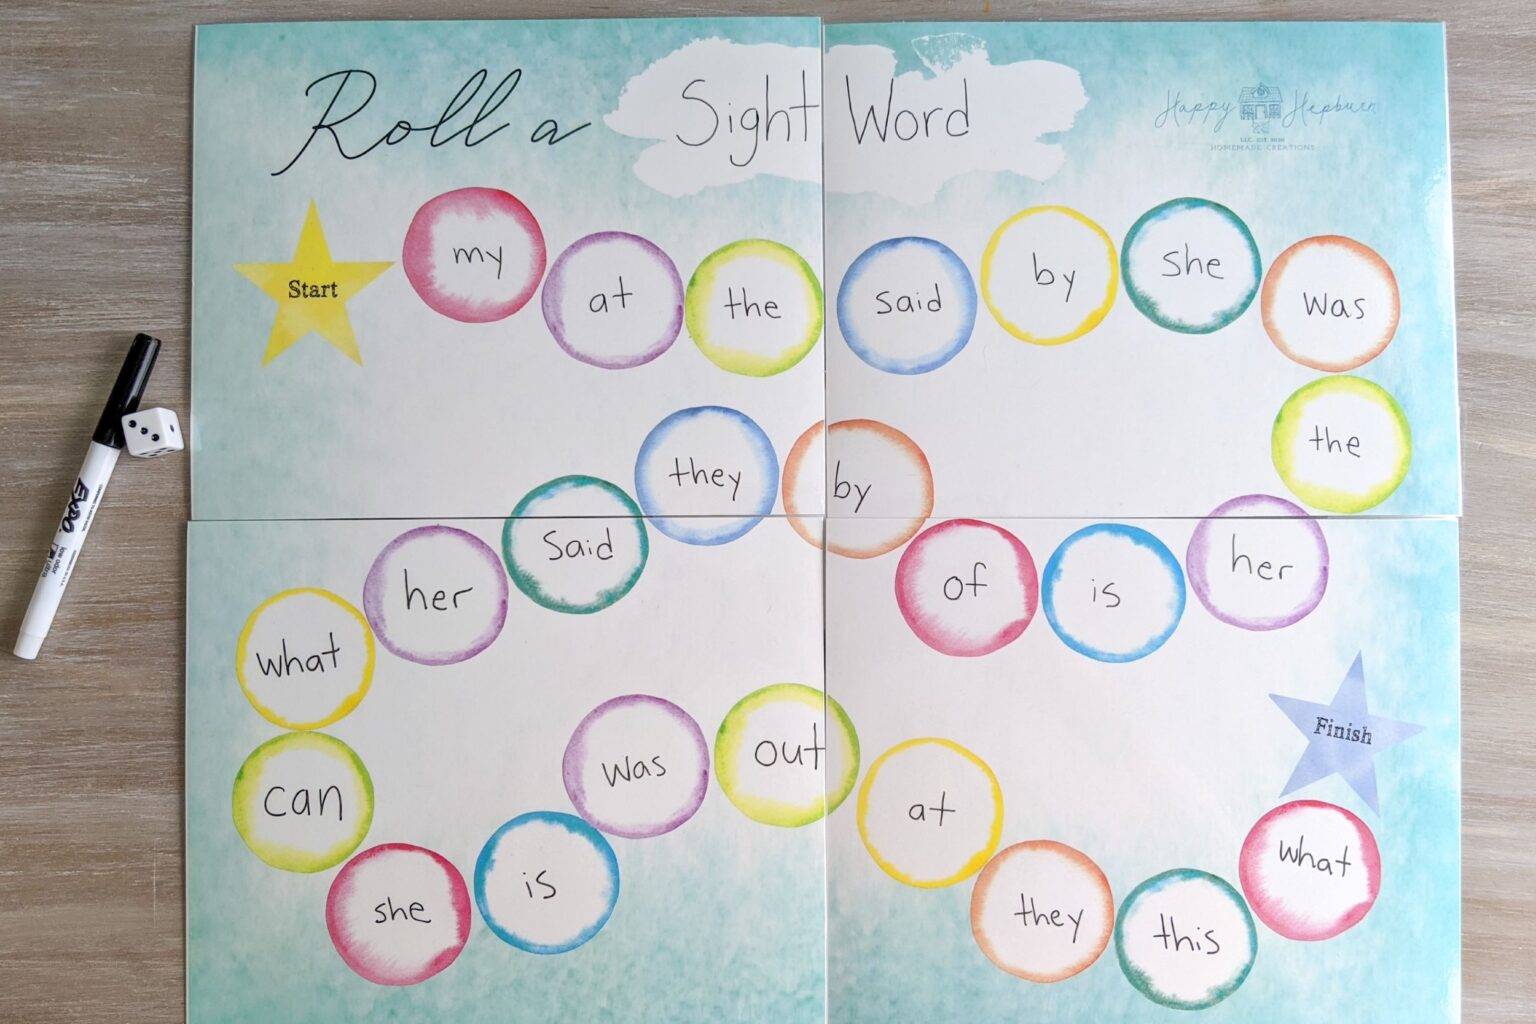 Roll a Sight Word
Happy Hepburn
LLC. EST. 2020
HOMEMADE CREATIONS
Start
my
at
the
said
by
she
was
the
her
is
of
by
they
Said
her
what
can
she
is
was
out
at
they
this
what
Finish
EXPO
low odor